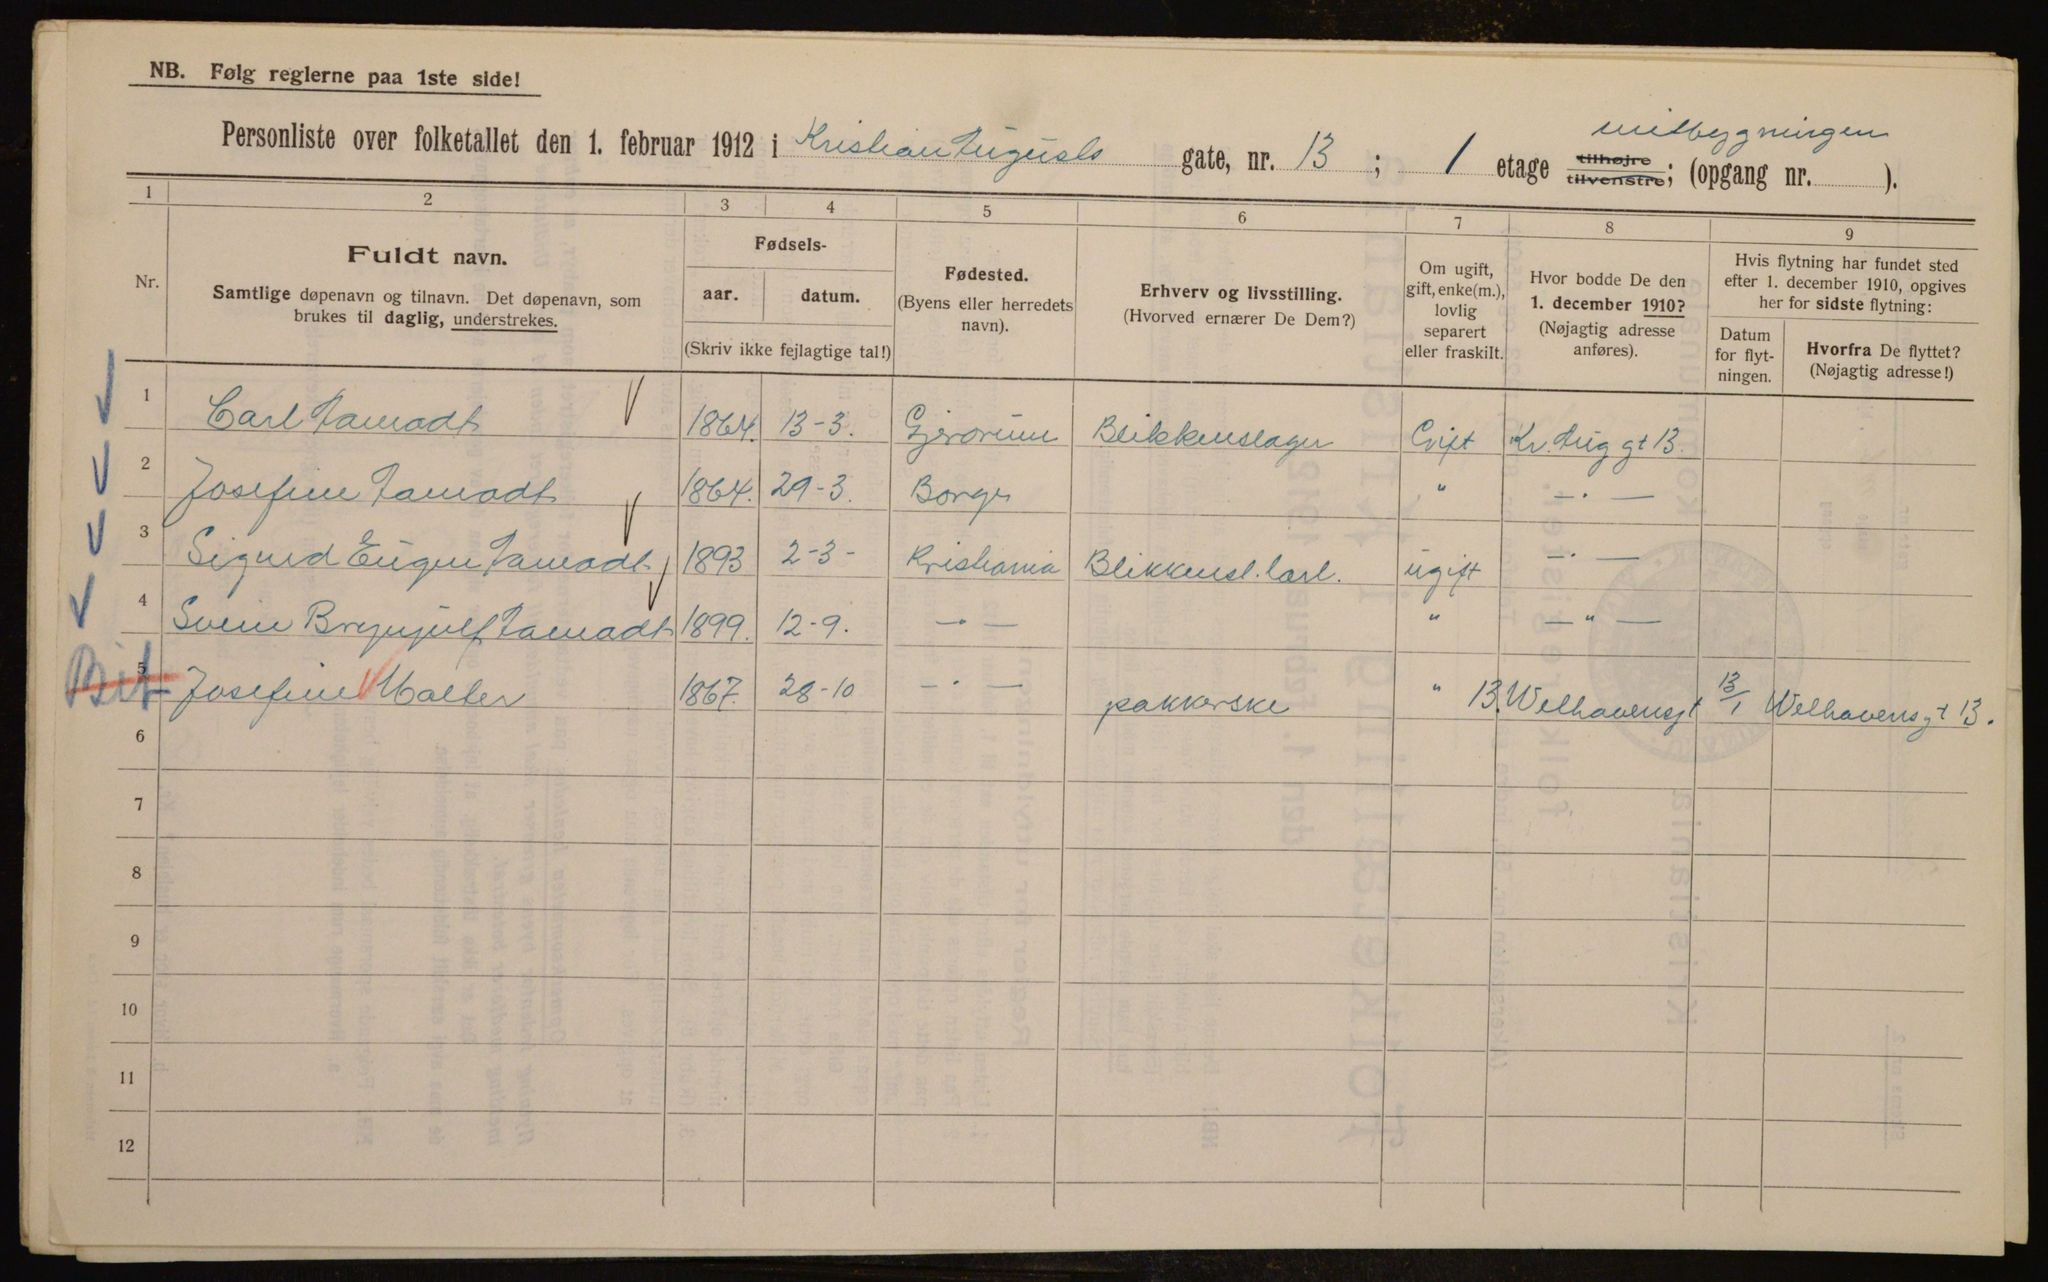 NB. Følg reglerne paa 1ste side!
mitbygningen
Personliste over folketallet den 1. februar 1912 i Kristian Augusts gate, nr. 13; 1 etage tilhøjre tilvenstre; (opgang nr. ).
1 2 3 4 5 6 7 8 9
Nr.
Fuldt navn.
Samtlige døpenavn og tilnavn. Det døpenavn, som
brukes til daglig, understrekes.
Fødsels-
aar. datum.
(Skriv ikke fejlagtige tal!)
Fødested.
(Byens eller herredets
navn).
Erhverv og livsstilling.
(Hvorved ernærer De Dem?)
Om ugift,
gift, enke(m.),
lovlig
separert
eller fraskilt.
Hvor bodde De den
1. december 1910?
(Nøjagtig adresse
anføres).
Hvis flytning har fundet sted
efter 1. december 1910, opgives
her for sidste flytning:
Datum
for flyt-
ningen.
Hvorfra De flyttet?
(Nøjagtig adresse!)
1 Carl 1864. 13-3. Blikkenslager Gift Kr. Aug gt 13.
2 Josefine 1864. 29-3. Borge " — " —
3 Sigurd Eugen 1893 2-3- Kristiania Blikkensl. lærl. ugift — " —
4 Svein Brynjulf 1899. 12-9. — " — " — " —
5 Josefine Walter 1867. 28-10 — " — pakkerske " 13. Welhavensgt 13/1 Welhavensgt 13.
6
7
8
9
10
11
12